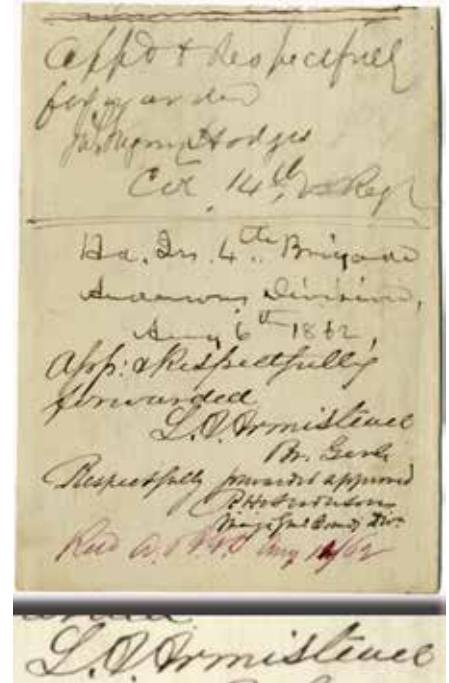 App'd & Respectfully
forwarded
Jas. Gregory Hodges
Col. 14th Va Regt
Hd. Qrs. 4th Brigade
Andersons Division,
Aug 6th 1862,
App: & Respectfully
forwarded
L. A. Armistead
Br. Genl.
Respectfully forwarded approved
R H Anderson
Maj. Genl Comdg Divn
Recd A. & I. G. O Aug 62
L. A. Armistead